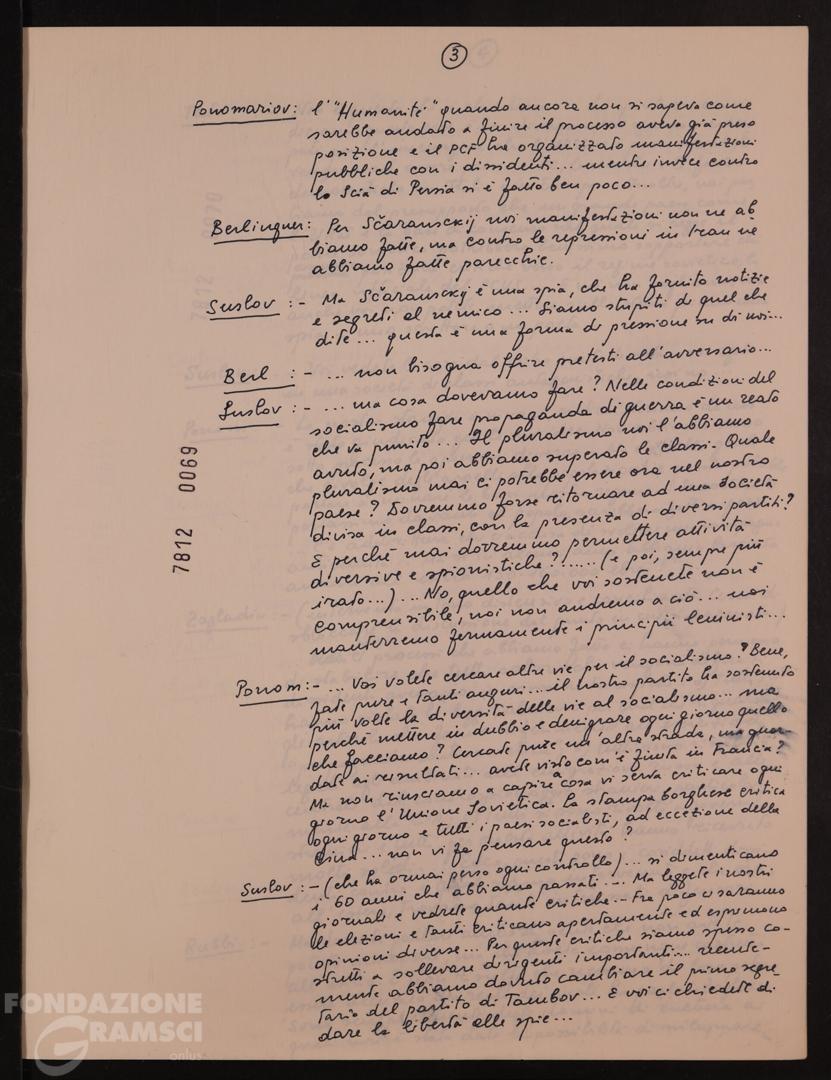 3
Ponomariov: l'"Humanité" quando ancora non si sapeva come
sarebbe andato a finire il processo aveva già preso
posizione e il PCF ha organizzato manifestazioni
pubbliche con i dissidenti... mentre invece contro
lo Scià di Persia si è fatto ben poco...
Berlinguer: Per Sčaransckij noi manifestazioni non ne ab
biamo fatte, ma contro le repressioni in Iran ne
abbiamo fatte parecchie.
Suslov :- Ma Sčaransckij è una spia, che ha fornito notizie
e segreti al nemico... Siamo stupiti di quel che
dite... questa è una forma di pressione su di noi...
Berl :- ... non bisogna offrire pretesti all'avversario...
Suslov :- ... ma cosa dovevamo fare? Nelle condizioni del
socialismo fare propaganda di guerra è un reato
che va punito... Il pluralismo noi l'abbiamo
avuto, ma poi abbiamo superato le classi. Quale
pluralismo mai ci potrebbe essere ora nel nostro
paese? Dovremmo forse ritornare ad una società
divisa in classi, con la presenza di diversi partiti?
E perché mai dovremmo permettere attività
diversive e spionistiche?...... (e poi, sempre più
irato...)... No, quello che voi sostenete non è
comprensibile, noi non andremo a ciò... noi
manterremo fermamente i principii leninisti...
Ponom:- ... Voi volete cercare altre vie per il socialismo? Bene,
fate pure e tanti auguri... il nostro partito ha sostenuto
più volte la diversità delle vie al socialismo... ma
perché mettere in dubbio e denigrare ogni giorno quello
che facciamo? Cercate pure un'altra strada, ma guar-
date ai risultati... avete visto com'è finita in Francia?
Ma non riusciamo a capire a cosa vi serva criticare ogni
giorno l'Unione Sovietica. La stampa borghese critica
ogni giorno e tutti i paesi socialisti, ad eccezione della
Cina... non vi fa pensare questo?
Suslov :- (che ha ormai perso ogni controllo)... si dimenticano
i 60 anni che abbiamo passati... Ma leggete i nostri
giornali e vedrete quante critiche... Fra poco ci saranno
le elezioni e tanti criticano apertamente ed esprimono
opinioni diverse... Per queste critiche siamo spesso co-
stretti a sollevare dirigenti importanti... recente-
mente abbiamo dovuto cambiare il primo segre
tario del partito di Tambov... E voi ci chiedete di
dare la libertà alle spie...
7812 0069
FONDAZIONE
GRAMSCI
onlus